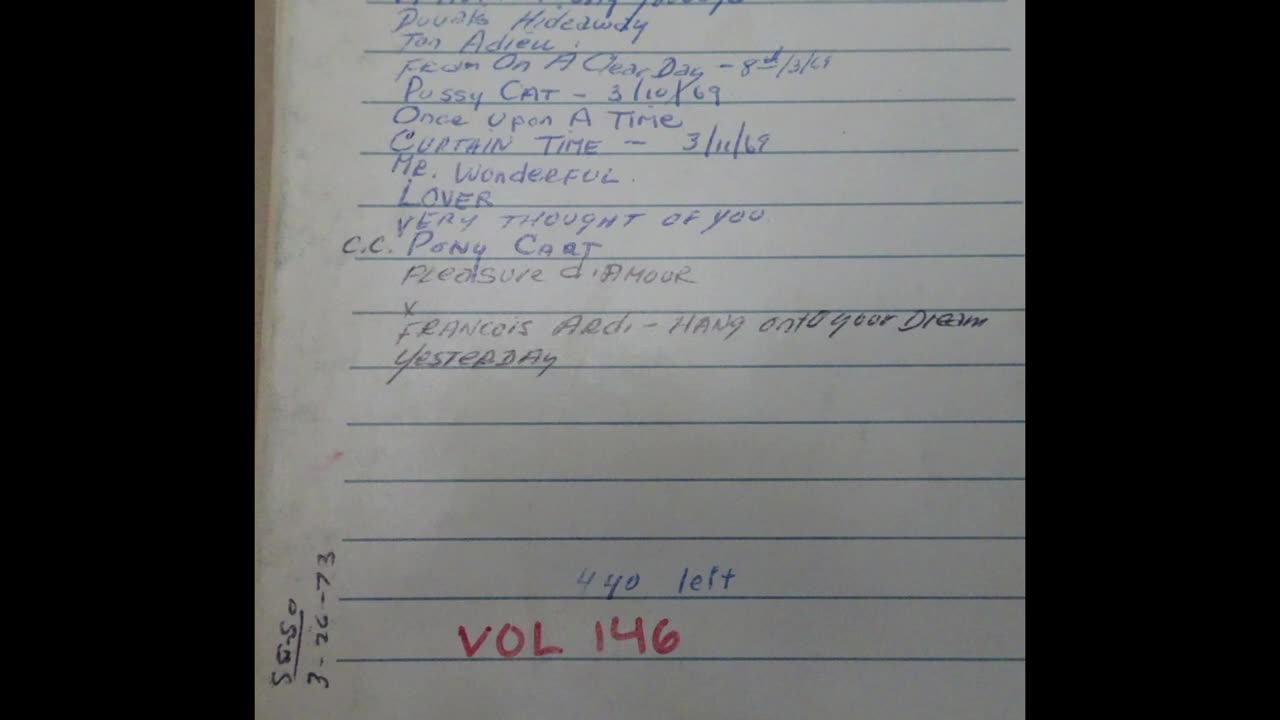 Hideaway
Ton Adieu
From On A Clear Day - 8th/3/69
Pussy CAT - 3/10/69
Once Upon A Time
CURTAIN TIME - 3/11/69
MR. WonderFUL.
LOVER
VERY THOUGHT OF YOU
C.C. PONY CART
PLeasure d'AMOUR
x
FRANCOIS ARdi - HANg onto your Dream
YESTERDAY
440 left
VOL 146
3-26-73